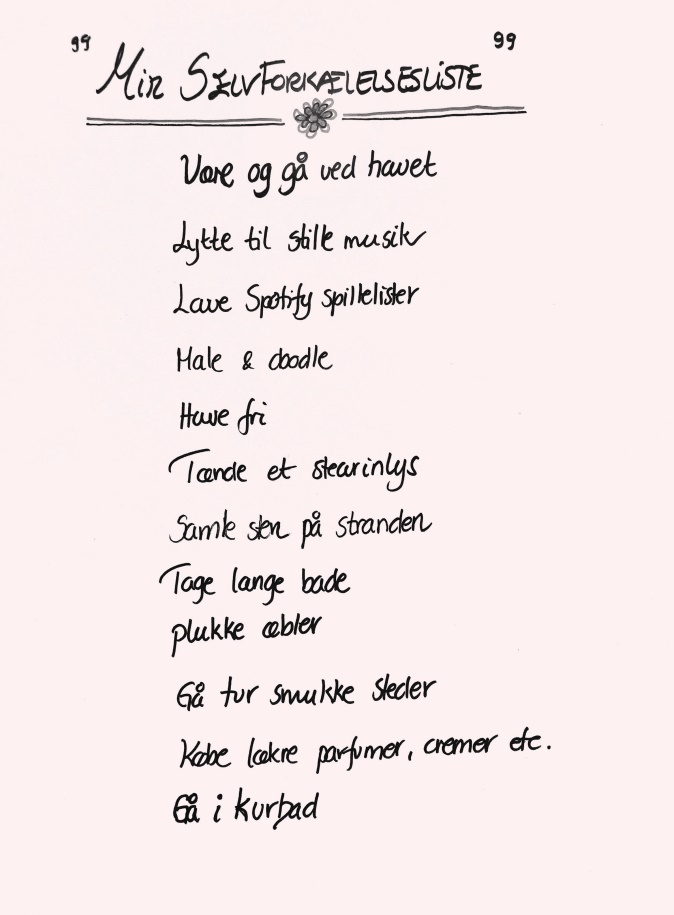 " Min SelvForkælelsesliste "
Være og gå ved havet
Lytte til stille musik
Lave Spotify spillelister
Male & doodle
Have fri
Tænde et stearinlys
Samle sten på stranden
Tage lange bade
plukke æbler
Gå tur smukke steder
Købe lækre parfumer, cremer etc.
Gå i kurbad